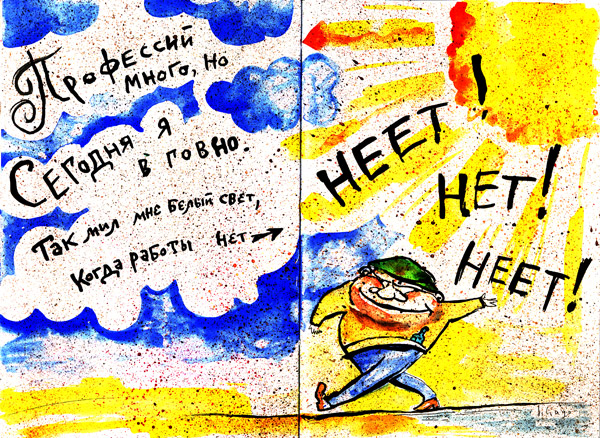 Профессий
много, но
Сегодня я
в говно.
Так мил мне белый свет,
Когда работы нет →
НЕЕТ!
НЕТ!
НЕЕТ!